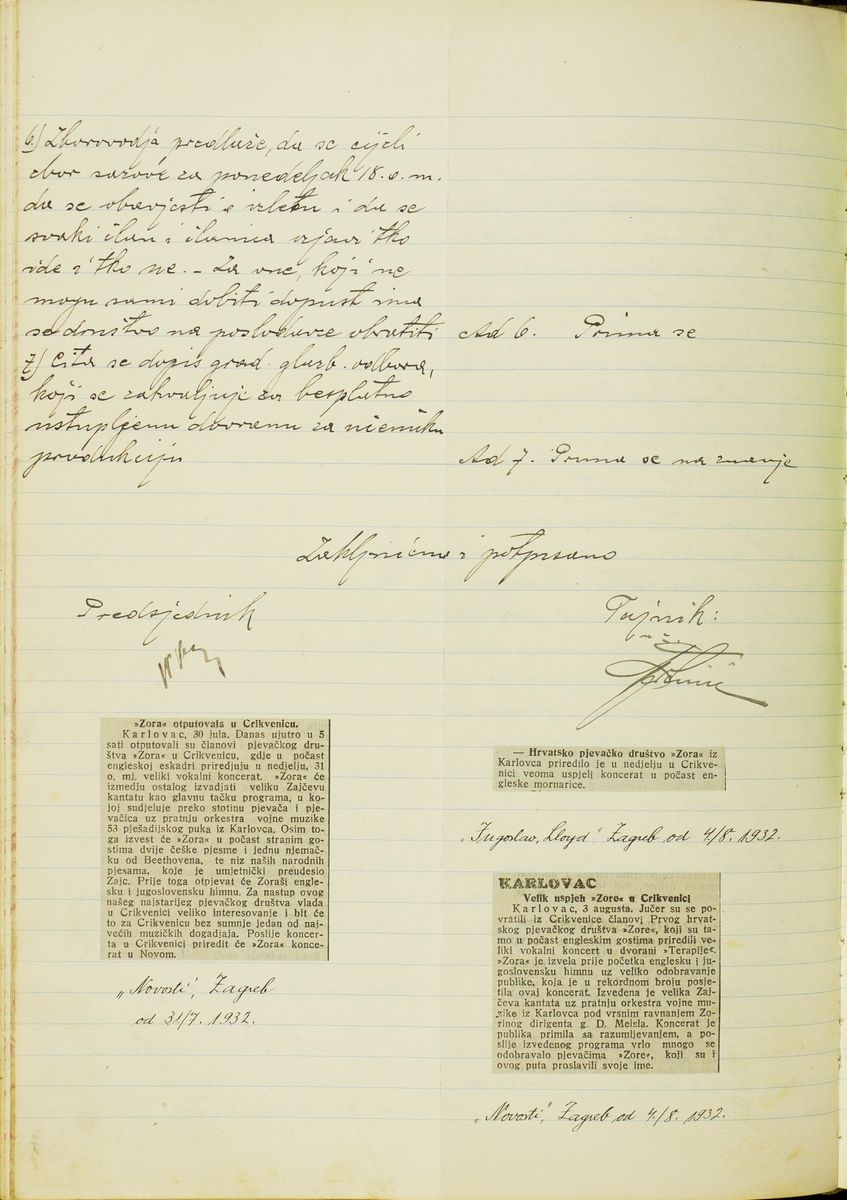 6) Zborovodja predlaže, da se cijeli
zbor sazove za ponedeljak 18. o. m.
da se obavjesti o izletu i da se
svaki član i članica izjavi tko
ide i tko ne. – Za one, koji ne
mogu sami dobiti dopust ima
se društvo na poslodavce obratiti
Ad 6. Prima se
7) Čita se dopis grad. glazb. odbora,
koji se zahvaljuje za besplatno
ustupljenu dvoranu za
produkciju
Ad 7. Prima se na znanje
Zaključeno i potpisano
Predsjednik
Tajnik:
»Zora« otputovala u Crikvenicu.
Karlovac, 30 jula. Danas ujutro u 5
sati otputovali su članovi pjevačkog dru-
štva »Zora« u Crikvenicu, gdje u počast
engleskoj eskadri priredjuju u nedjelju, 31
o. mj. veliki vokalni koncerat. »Zora« će
izmedju ostalog izvadjati veliku Zajčevu
kantatu kao glavnu tačku programa, u ko-
joj sudjeluje preko stotinu pjevača i pje-
vačica uz pratnju orkestra vojne muzike
53 pješadijskog puka iz Karlovca. Osim to-
ga izvest će »Zora« u počast stranim go-
stima dvije češke pjesme i jednu njemač-
ku od Beethovena, te niz naših narodnih
pjesama, koje je umjetnički preudesio
Zajc. Prije toga otpjevat će Zoraši engle-
sku i jugoslovensku himnu. Za nastup ovog
našeg najstarijeg pjevačkog društva vlada
u Crikvenici veliko interesovanje i bit će
to za Crikvenicu bez sumnje jedan od naj-
većih muzičkih dogadjaja. Poslije koncer-
ta u Crikvenici priredit će »Zora« konce-
rat u Novom.
„Novosti", Zagreb
od 31/7. 1932.
— Hrvatsko pjevačko društvo »Zora« iz
Karlovca priredilo je u nedjelju u Crikve-
nici veoma uspjeli koncerat u počast en-
gleske mornarice.
„Jugoslav. Lloyd" Zagreb od 4/8. 1932.
KARLOVAC
Velik uspjeh »Zore« u Crikvenici
Karlovac, 3 augusta. Jučer su se po-
vratili iz Crikvenice članovi Prvog hrvat-
skog pjevačkog društva »Zore«, koji su ta-
mo u počast engleskim gostima priredili ve-
liki vokalni koncert u dvorani »Terapije«.
»Zora« je izvela prije početka englesku i ju-
goslovensku himnu uz veliko odobravanje
publike, koja je u rekordnom broju posje-
tila ovaj koncerat. Izvedena je velika Zaj-
čeva kantata uz pratnju orkestra vojne mu-
zike iz Karlovca pod vrsnim ravnanjem Zo-
rinog dirigenta g. D. Meisla. Koncerat je
publika primila sa razumijevanjem, a po-
slije izvedenog programa vrlo mnogo se
odobravalo pjevačima »Zore«, koji su i
ovog puta proslavili svoje ime.
„Novosti", Zagreb od 4./8. 1932.